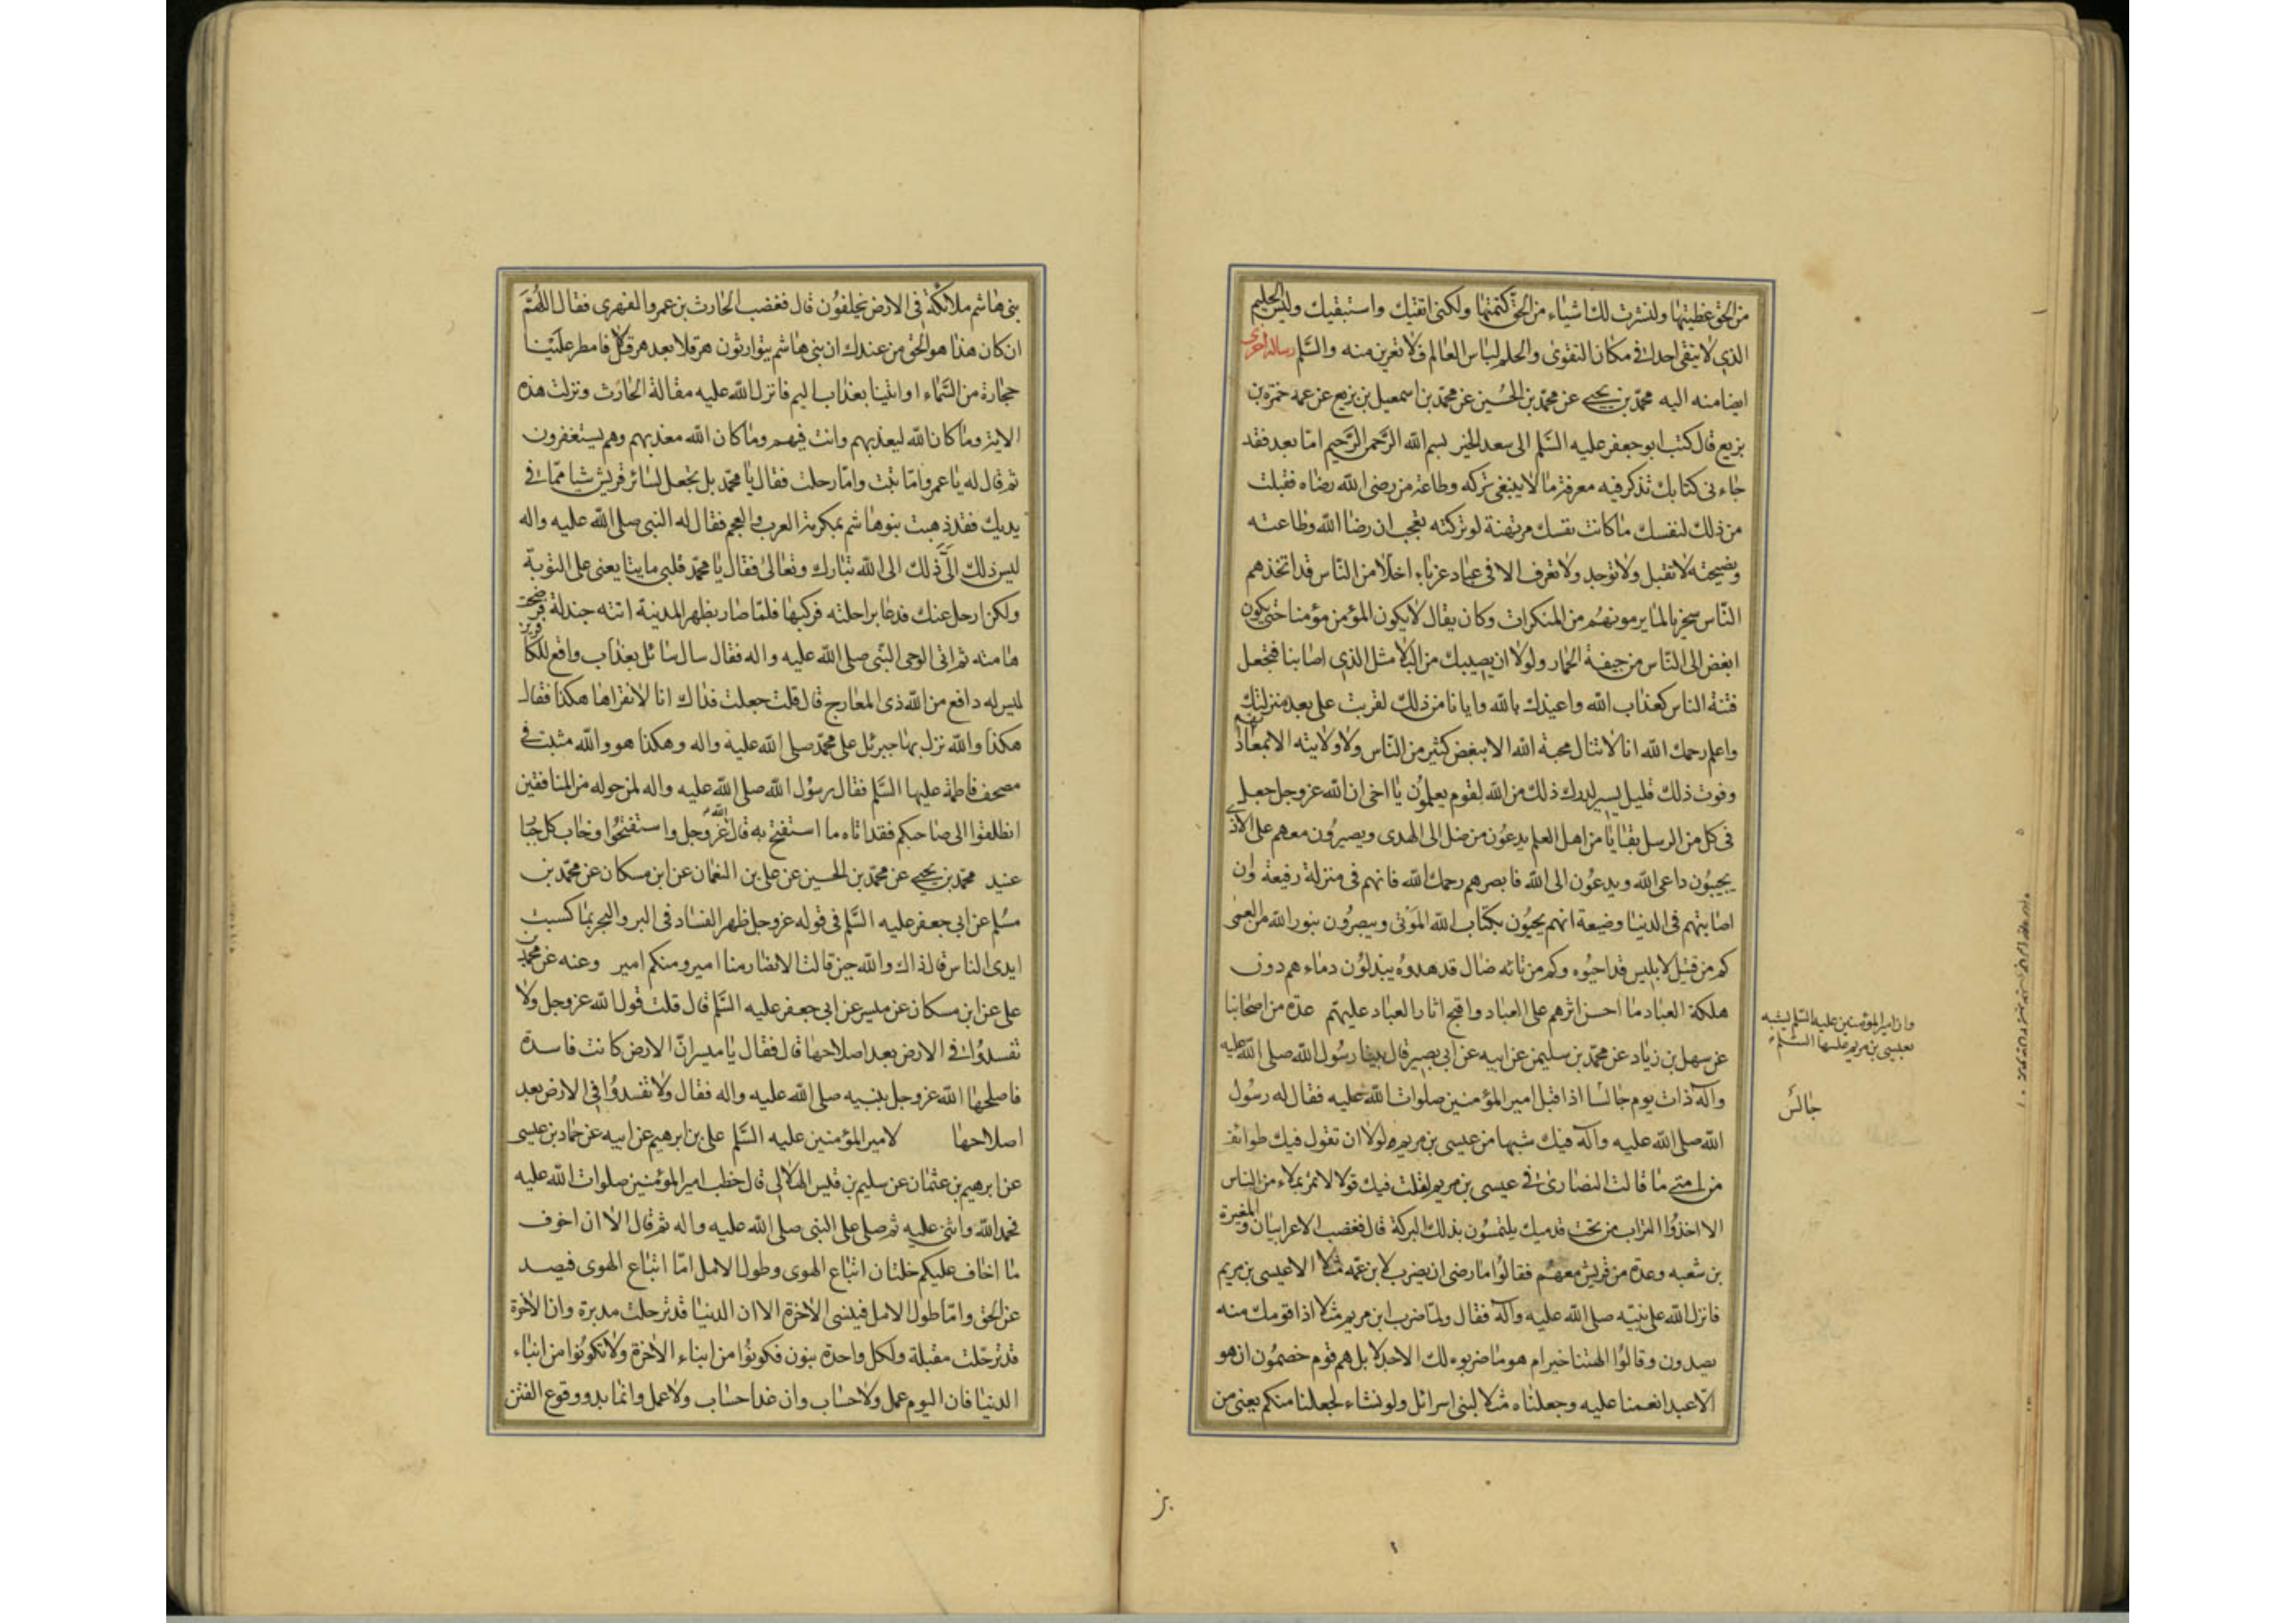 من الحق غطيتها ولنشرت لك اشياء من الحق كتمتها ولكني اتقيك واستبقيك وليس الحليم
الذي لا يتقي احدا في مكان التقوى والحلم لباس العالم فلا تعرين منه والسلم رسالة اخرى
ايضا منه اليه محمد بن يحيى عن محمد بن الحسين عن محمد بن اسمعيل بن بزيع عن عمه حمزة بن
بزيع قال كتب ابو جعفر عليه السلم الى سعد الخير بسم الله الرحمن الرحيم اما بعد فقد
جاءني كتابك تذكر فيه معرفة ما لا ينبغي تركه وطاعة من رضى الله رضاه فقبلت
من ذلك لنفسك ما كانت نفسك مرتهنة لو تركته تعجب ان رضا الله وطاعته
ونصيحته لا تقبل ولا توجد ولا تعرف الا في عباد غرباء اخلاء من الناس قد اتخذهم
الناس سخريا لما يرمونهم من المنكرات وكان يقال لا يكون المؤمن مؤمنا حتى يكون
ابغض الى الناس من جيفة الحمار ولولا ان يصيبك من البلاء مثل الذي اصابنا فتجعل
فتنة الناس كعذاب الله واعيذك بالله وايانا من ذلك لقربت على بعد منزلتك
واعلم رحمك الله انا لا ننال محبة الله الا ببغض كثير من الناس ولا ولايته الا بمعاداتهم
وفوت ذلك قليل يسير لدرك ذلك من الله لقوم يعلمون يا اخي ان الله عز وجل جعل
في كل من الرسل بقايا من اهل العلم يدعون من ضل الى الهدى ويصبرون معهم على الاذى
يجيبون داعي الله ويدعون الى الله فابصرهم رحمك الله فانهم في منزلة رفيعة وان
اصابتهم في الدنيا وضيعة انهم يحيون بكتاب الله الموتى ويبصرون بنور الله من العمى
كم من قتيل لابليس قد احيوه وكم من تائه ضال قد هدوه يبذلون دماءهم دون
هلكة العباد ما احسن اثرهم على العباد واقبح اثار العباد عليهم عدة من اصحابنا
عن سهل بن زياد عن محمد بن سليمن عن ابيه عن ابي بصير قال بينا رسول الله صلى الله عليه
وآله ذات يوم جالسا اذ اقبل امير المؤمنين صلوات الله عليه فقال له رسول
الله صلى الله عليه وآله فيك شبها من عيسى بن مريم ولولا ان تقول فيك طوائف
من امتي ما قالت النصارى في عيسى بن مريم لقلت فيك قولا لا تمر بملاء من الناس
الا اخذوا التراب من تحت قدميك يلتمسون بذلك البركة قال فغضب الاعرابيان والمغيرة
بن شعبه وعدة من قريش معهم فقالوا ما رضى ان يضرب لابن عمه مثلا الا عيسى بن مريم
فانزل الله على نبيه صلى الله عليه وآله فقال ولما ضرب ابن مريم مثلا اذا قومك منه
يصدون وقالوا الهتنا خير ام هو ما ضربوه لك الا جدلا بل هم قوم خصمون ان هو
الا عبد انعمنا عليه وجعلناه مثلا لبني اسرائل ولو نشاء لجعلنا منكم يعني من
وان امير المؤمنين عليه السلم يشبه
بعيسى بن مريم عليها السلم
جالس
بني هاشم ملائكة في الارض يخلفون قال فغضب الحارث بن عمرو الفهري فقال اللهم
ان كان هذا هو الحق من عندك ان بني هاشم يتوارثون هرقلا بعد هرقل فامطر علينا
حجارة من السماء او ائتنا بعذاب اليم فانزل الله عليه مقالة الحارث ونزلت هذه
الاية وما كان الله ليعذبهم وانت فيهم وما كان الله معذبهم وهم يستغفرون
ثم قال له يا عمرو اما تبت واما رحلت فقال يا محمد بل تجعل لسائر قريش شيا مما في
يديك فقد ذهبت بنو هاشم بمكرمة العرب والعجم فقال له النبي صلى الله عليه واله
ليس ذلك الي ذلك الى الله تبارك وتعالى فقال يا محمد قلبي ما يتابعني على التوبة
ولكن ارحل عنك فدعا براحلته فركبها فلما صار بظهر المدينة اتته جندلة فرضخت
هامته ثم اتى الوحي النبي صلى الله عليه واله فقال سال سائل بعذاب واقع للكافرين
ليس له دافع من الله ذي المعارج قال قلت جعلت فداك انا لا نقراها هكذا فقال
هكذا والله نزل بها جبرئل على محمد صلى الله عليه واله وهكذا هو والله مثبت في
مصحف فاطمة عليها السلم فقال رسول الله صلى الله عليه واله لمن حوله من المنافقين
انطلقوا الى صاحبكم فقد اتاه ما استفتح به قال الله عز وجل واستفتحوا وخاب كل جبار
عنيد محمد بن يحيى عن محمد بن الحسين عن علي بن النعمان عن ابن مسكان عن محمد بن
مسلم عن ابي جعفر عليه السلم في قوله عز وجل ظهر الفساد في البر والبحر بما كسبت
ايدي الناس قال ذاك والله حين قالت الانصار منا امير ومنكم امير وعنه عن محمد بن
علي عن ابن مسكان عن ميسر عن ابي جعفر عليه السلم قال قلت قول الله عز وجل ولا
تفسدوا في الارض بعد اصلاحها قال فقال يا ميسر ان الارض كانت فاسدة
فاصلحها الله عز وجل بنبيه صلى الله عليه واله فقال ولا تفسدوا في الارض بعد
اصلاحها لامير المؤمنين عليه السلم علي بن ابرهيم عن ابيه عن حماد بن عيسى
عن ابرهيم بن عثمان عن سليم بن قيس الهلالي قال خطب امير المؤمنين صلوات الله عليه
فحمد الله واثنى عليه ثم صلى على النبي صلى الله عليه واله ثم قال الا ان اخوف
ما اخاف عليكم خلتان اتباع الهوى وطول الامل اما اتباع الهوى فيصد
عن الحق واما طول الامل فينسى الاخرة الا ان الدنيا قد ترحلت مدبرة وان الاخرة
قد ترحلت مقبلة ولكل واحدة بنون فكونوا من ابناء الاخرة ولا تكونوا من ابناء
الدنيا فان اليوم عمل ولا حساب وان غدا حساب ولا عمل وانما بدو وقوع الفتن